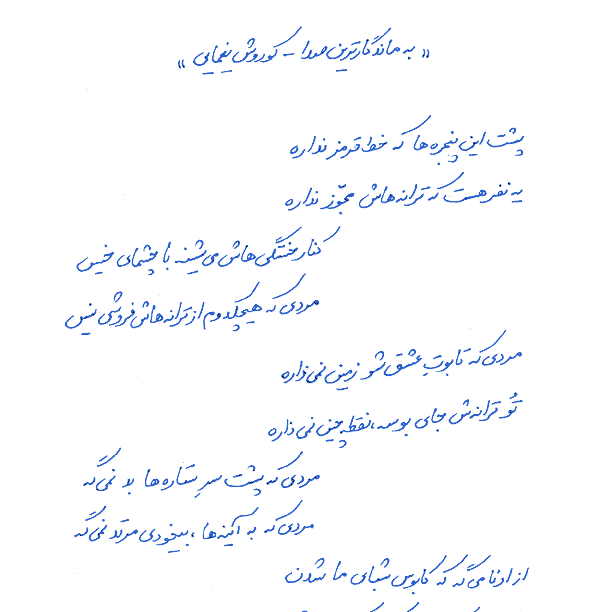 « به ماندگارترین صدا - کوروش یغمایی »
پشت این پنجره ها که خط قرمز نداره
یه نفر هست که ترانه هاش مجوّز نداره
کنار خستگی هاش می شینه با چشمای خیس
مردی که هیچکدوم از ترانه هاش فروشی نیس
مردی که تابوتِ عشق شو زمین نمی ذاره
تُو ترانه ش جای بوسه، نقطه چین نمی ذاره
مردی که پشت سرِ ستاره ها بد نمی گه
مردی که به آینه ها، بیخودی مرتد نمی گه
از اونا می گه که کابوس شبای ما شدن